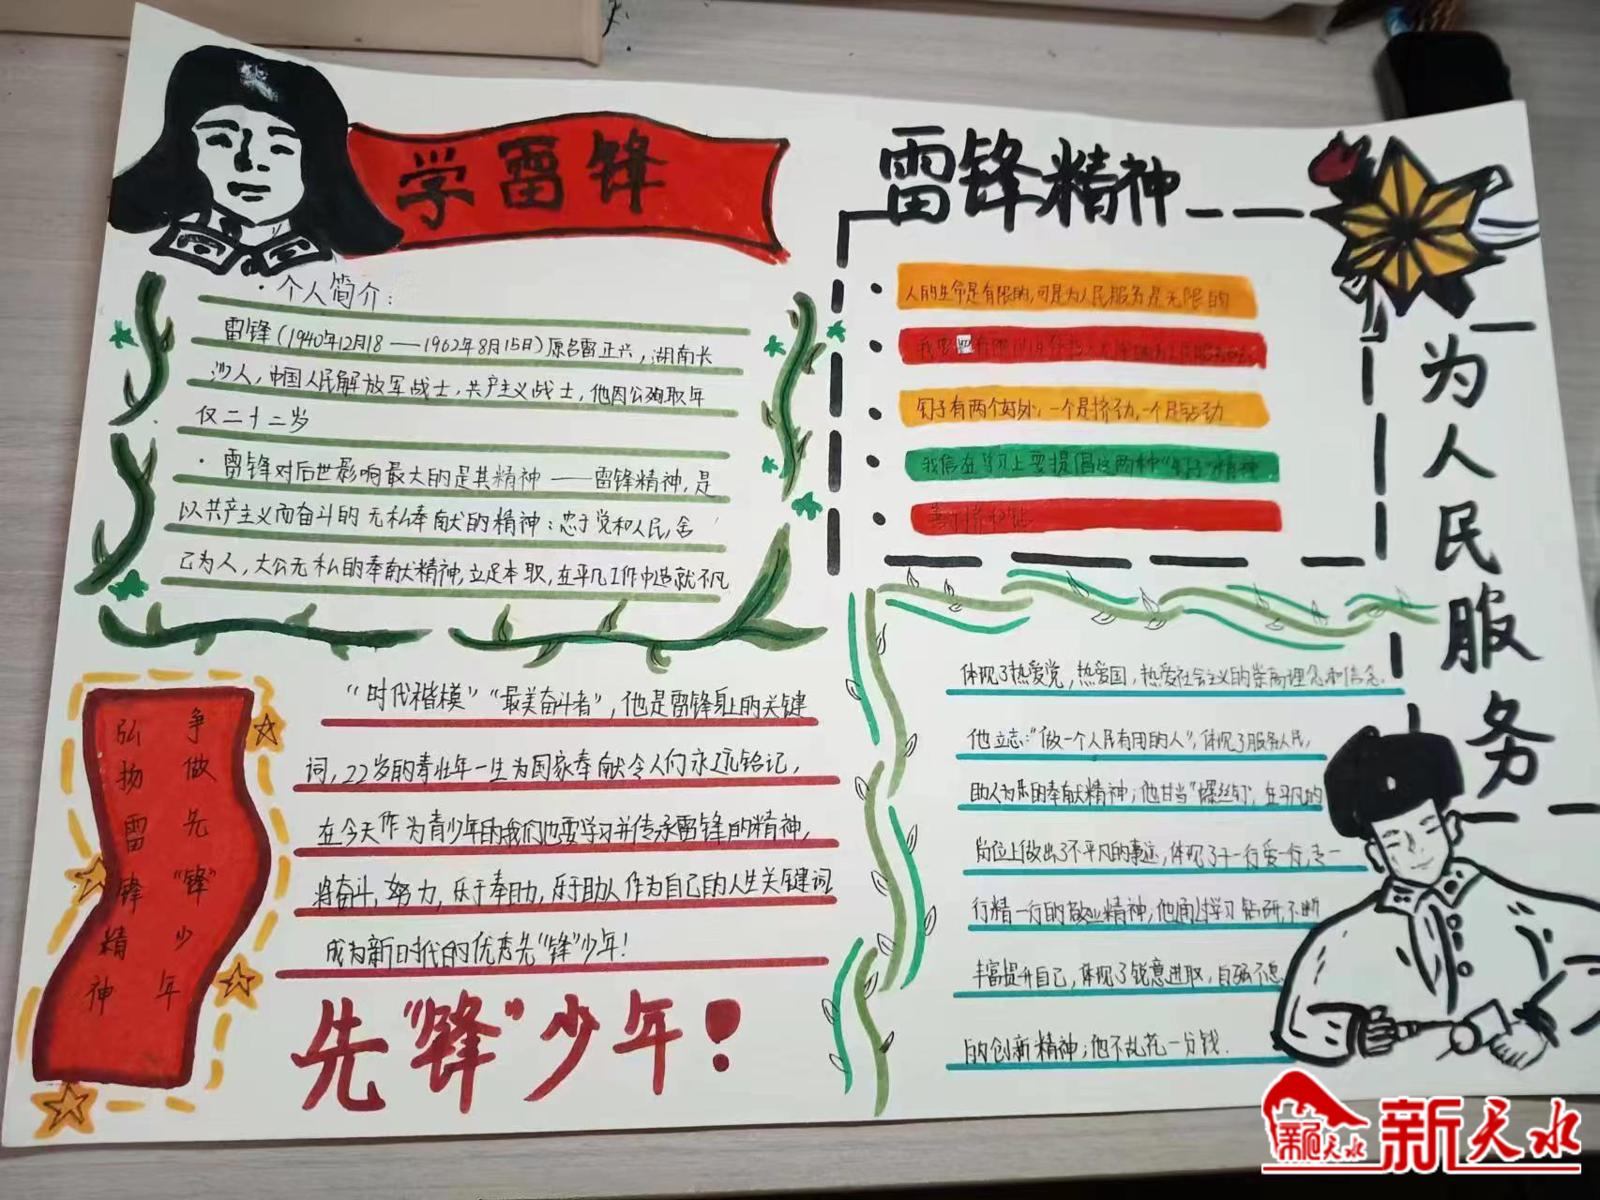 学雷锋
·个人简介:
雷锋(1940年12月18——1962年8月15日)原名雷正兴,湖南长
沙人,中国人民解放军战士,共产主义战士,他因公殉职年
仅二十二岁
·雷锋对后世影响最大的是其精神——雷锋精神,是
以共产主义而奋斗的无私奉献的精神:忠于党和人民,舍
己为人,大公无私的奉献精神,立足本职,在平凡工作中造就不凡
争做先“锋”少年
弘扬雷锋精神
“时代楷模”“最美奋斗者”,他是雷锋身上的关键
词,22岁的青壮年一生为国家奉献令人们永远铭记,
在今天作为青少年的我们也要学习并传承雷锋的精神,
将奋斗,努力,乐于奉献,乐于助人作为自己的人生关键词
成为新时代的优秀先“锋”少年!
先“锋”少年!
雷锋精神
人的生命是有限的,可是为人民服务是无限的
钉子有两个好处:一个是挤劲,一个是钻劲
我们在学习上要提倡这两种“钉子”精神
为人民服务
体现了热爱党,热爱国,热爱社会主义的崇高理念和信念.
他立志:“做一个人民有用的人”,体现了服务人民,
助人为乐的奉献精神;他甘当“螺丝钉”,在平凡的
岗位上做出了不平凡的事迹,体现了干一行爱一行,专一
行精一行的敬业精神,他通过学习钻研,不断
丰富提升自己,体现了锐意进取,自强不息
的创新精神;他不乱花一分钱.
新天水
新天水